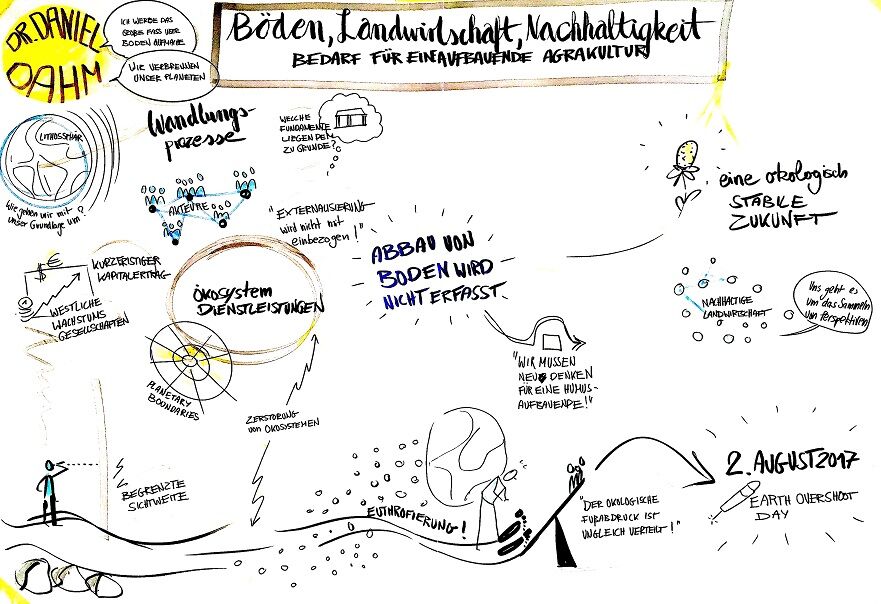 DR. DANIEL
DAHM
ICH WERDE DAS
GROßE FASS ÜBER
BODEN AUFMACHEN
WIR VERBRENNEN
UNSER PLANETEN
Böden, Landwirtschaft, Nachhaltigkeit
BEDARF FÜR EIN AUFBAUENDE AGRAKULTUR
LITHOSSPHÄR
Wie gehen wir mit
unser Grundlage um?
Wandlungs-
prozesse
AKTEURE
WELCHE
FUNDAMENTE
LIEGEN DEM
ZU GRUNDE?
"EXTERNALISIERUNG
wird nicht mit
einbezogen!"
eine ökologisch
STABILE
ZUKUNFT
$ €
KURZFRISTIGER
KAPITALERTRAG
WESTLICHE
WACHSTUMS
GESELLSCHAFTEN
ökosystem
DIENSTLEISTUNGEN
PLANETARY
BOUNDARIES
ABBAU VON
BODEN WIRD
NICHT ERFASST
NACHHALTIGE
LANDWIRTSCHAFT
Uns geht es
um das Sammeln
von Perspektiven
"WIR MÜSSEN
NEU DENKEN
FÜR EINE HUMUS-
AUFBAUENDE!"
ZERSTÖRUNG
von ÖKOSYSTEMEN
BEGRENZTE
SICHTWEITE
EUTHROFIERUNG!
"DER ÖKOLOGISCHE
FUßABDRUCK IST
UNGLEICH VERTEILT!"
2. AUGUST 2017
EARTH OVERSHOOT
DAY